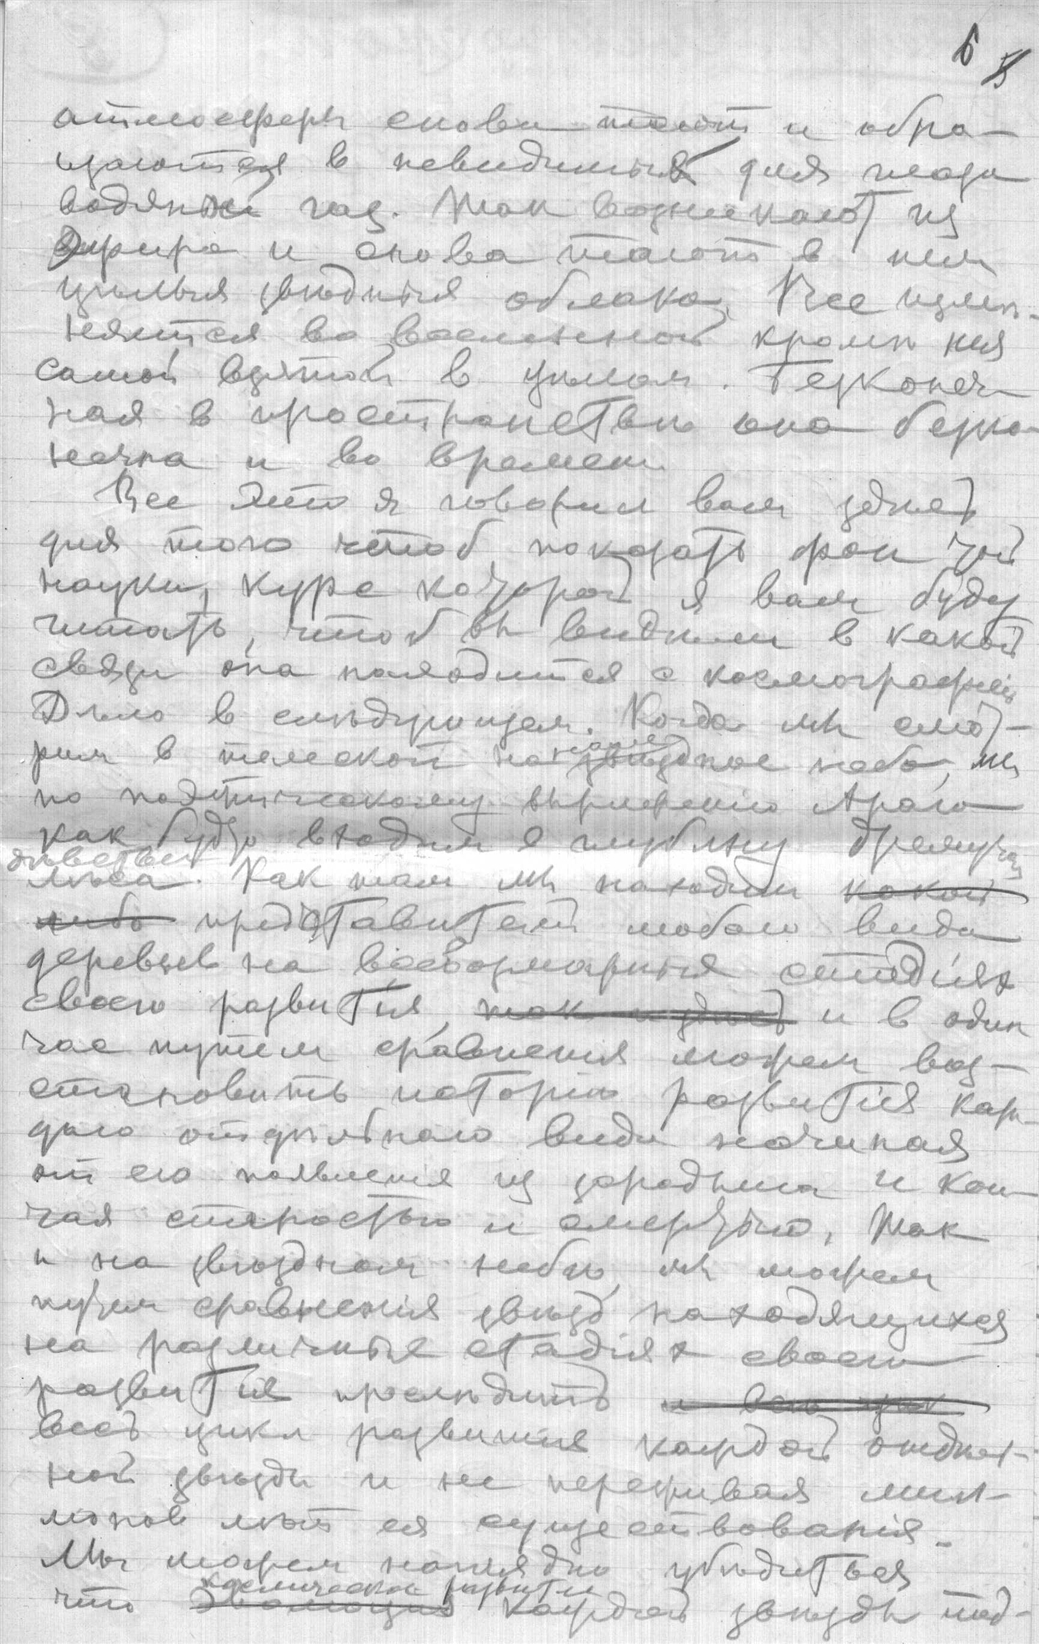 6 5
атмосферы снова тают и обра-
щаются в невидимый для глаза
водяной газ. Так возникают из
эфира и снова тают в нем
целыя звѣздныя облака. Все измѣ-
няется во вселенной кромѣ нея
самой взятой в цѣлом. Безконеч-
ная в пространствѣ она безко-
нечна и во времени.
Все это я говорил вам здѣсь
для того чтоб показать фон той
науки, курс которой я вам буду
читать, чтоб вы видѣли в какой
связи она находится с космографией
Дѣло в слѣдующем. Когда мы смот-
рим в телескоп на звѣздное небо, мы
по поэтическому выражению Араго
как будто входим в глубину дремучаго
лѣса. Как там мы находим какой
либо представителей любого вида
деревьев на всевозможныя стадіях
своего развитія, так и здѣсь и в один
час путем сравнения можем воз-
становить исторію развитія каж-
даго отдѣльнаго вида начиная
от его появления из зародыша и кон-
чая старостью и смертью, так
и на звѣздном небѣ, мы можем
путем сравнения звѣзд находящихся
на различныя стадіях своего
развитія прослѣдить и весь цик
весь цикл развития каждой отдѣль-
ной звѣзды и не переживая мил-
ліонов лѣт ея существованія.
Мы можем наглядно убѣдиться
космическое развитие
что эволюция каждой звѣзды под-